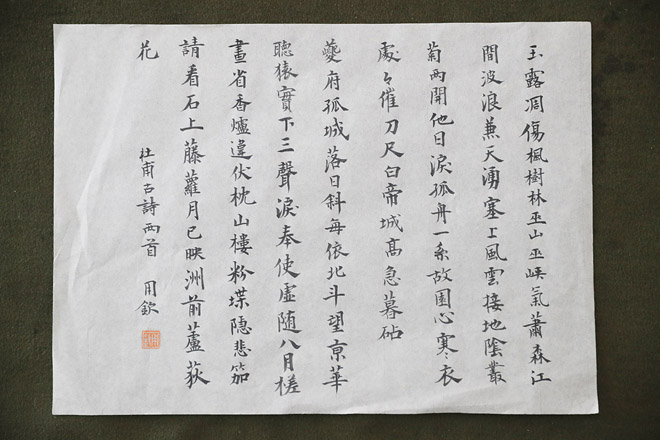 玉露凋傷楓樹林巫山巫峽氣蕭森江
間波浪兼天湧塞上風雲接地陰叢
菊兩開他日淚孤舟一系故園心寒衣
處々催刀尺白帝城高急暮砧
夔府孤城落日斜每依北斗望京華
聽猿實下三聲淚奉使虛隨八月槎
畫省香爐違伏枕山樓粉堞隱悲笳
請看石上藤蘿月已映洲前蘆荻
花
杜甫古詩兩首 用欽